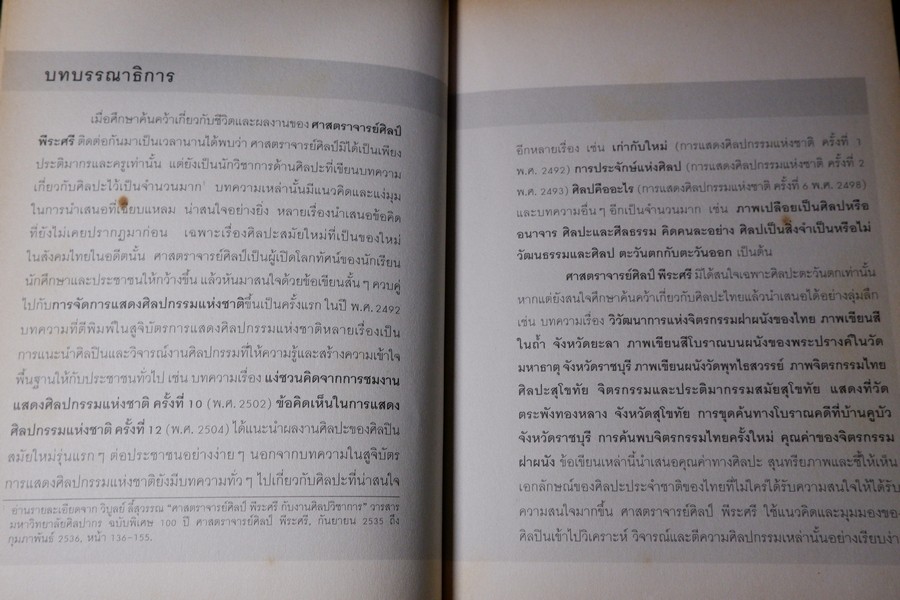 บทบรรณาธิการ
เมื่อศึกษาค้นคว้าเกี่ยวกับชีวิตและผลงานของ ศาสตราจารย์ศิลป์
พีระศรี ติดต่อกันมาเป็นเวลานานได้พบว่า ศาสตราจารย์ศิลป์มิได้เป็นเพียง
ประติมากรและครูเท่านั้น แต่ยังเป็นนักวิชาการด้านศิลปะที่เขียนบทความ
เกี่ยวกับศิลปะไว้เป็นจำนวนมาก บทความเหล่านั้นมีแนวคิดและแง่มุม
ในการนำเสนอที่เฉียบแหลม น่าสนใจอย่างยิ่ง หลายเรื่องนำเสนอข้อคิด
ที่ยังไม่เคยปรากฏมาก่อน เฉพาะเรื่องศิลปะสมัยใหม่ที่เป็นของใหม่
ในสังคมไทยในอดีตนั้น ศาสตราจารย์ศิลป์เป็นผู้เปิดโลกทัศน์ของนักเรียน
นักศึกษาและประชาชนให้กว้างขึ้น แล้วหันมาสนใจด้วยข้อเขียนสั้น ๆ ควบคู่
ไปกับการจัดการแสดงศิลปกรรมแห่งชาติขึ้นเป็นครั้งแรก ในปี พ.ศ. 2492
บทความที่ตีพิมพ์ในสูจิบัตรการแสดงศิลปกรรมแห่งชาติหลายเรื่องเป็น
การแนะนำศิลปินและวิจารณ์งานศิลปกรรมที่ให้ความรู้และสร้างความเข้าใจ
พื้นฐานให้กับประชาชนทั่วไป เช่น บทความเรื่อง แง่ชวนคิดจากการชมงาน
แสดงศิลปกรรมแห่งชาติ ครั้งที่ 10 (พ.ศ. 2502) ข้อคิดเห็นในการแสดง
ศิลปกรรมแห่งชาติ ครั้งที่ 12 (พ.ศ. 2504) ได้แนะนำผลงานศิลปะของศิลปิน
สมัยใหม่รุ่นแรก ๆ ต่อประชาชนอย่างง่าย ๆ นอกจากบทความในสูจิบัตร
การแสดงศิลปกรรมแห่งชาติยังมีบทความทั่ว ๆ ไปเกี่ยวกับศิลปะที่น่าสนใจ
อ่านรายละเอียดจาก วิบูลย์ ลี้สุวรรณ "ศาสตราจารย์ศิลป์ พีระศรี กับงานศิลปวิชาการ" วารสาร
มหาวิทยาลัยศิลปากร ฉบับพิเศษ 100 ปี ศาสตราจารย์ศิลป์ พีระศรี, กันยายน 2535 ถึง
กุมภาพันธ์ 2536, หน้า 136-155.
อีกหลายเรื่อง เช่น เก่ากับใหม่ (การแสดงศิลปกรรมแห่งชาติ ครั้งที่ 1
พ.ศ. 2492) การประจักษ์แห่งศิลป (การแสดงศิลปกรรมแห่งชาติ ครั้งที่ 2
พ.ศ. 2493) ศิลปคืออะไร (การแสดงศิลปกรรมแห่งชาติ ครั้งที่ 6 พ.ศ. 2498)
และบทความอื่น ๆ อีกเป็นจำนวนมาก เช่น ภาพเปลือยเป็นศิลปหรือ
อนาจาร ศิลปะและศีลธรรม คิดคนละอย่าง ศิลปเป็นสิ่งจำเป็นหรือไม่
วัฒนธรรมและศิลป ตะวันตกกับตะวันออก เป็นต้น
ศาสตราจารย์ศิลป์ พีระศรี มิได้สนใจเฉพาะศิลปะตะวันตกเท่านั้น
หากแต่ยังสนใจศึกษาค้นคว้าเกี่ยวกับศิลปะไทยแล้วนำเสนอได้อย่างลุ่มลึก
เช่น บทความเรื่อง วิวัฒนาการแห่งจิตรกรรมฝาผนังของไทย ภาพเขียนสี
ในถ้ำ จังหวัดยะลา ภาพเขียนสีโบราณบนผนังของพระปรางค์ในวัด
มหาธาตุ จังหวัดราชบุรี ภาพเขียนผนังวัดพุทไธสวรรย์ ภาพจิตรกรรมไทย
ศิลปะสุโขทัย จิตรกรรมและประติมากรรมสมัยสุโขทัย แสดงที่วัด
ตระพังทองหลาง จังหวัดสุโขทัย การขุดค้นทางโบราณคดีที่บ้านคูบัว
จังหวัดราชบุรี การค้นพบจิตรกรรมไทยครั้งใหม่ คุณค่าของจิตรกรรม
ฝาผนัง ข้อเขียนเหล่านี้นำเสนอคุณค่าทางศิลปะ สุนทรียภาพและชี้ให้เห็น
เอกลักษณ์ของศิลปะประจำชาติของไทยที่ไม่ใคร่ได้รับความสนใจให้ได้รับ
ความสนใจมากขึ้น ศาสตราจารย์ศิลป์ พีระศรี ใช้แนวคิดและมุมมองของ
ศิลปินเข้าไปวิเคราะห์ วิจารณ์และตีความศิลปกรรมเหล่านั้นอย่างเรียบง่า